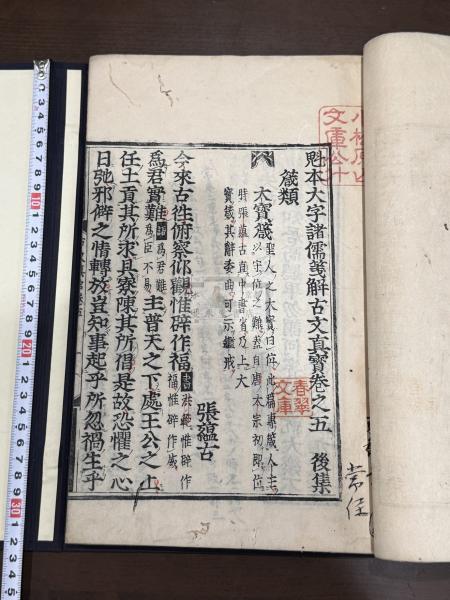 魁本大字諸儒箋解古文眞寳卷之五 後集
箴類
大寳箴
聖人之大寳曰位此篇專箴人主
以守位之難蓋自唐太宗初即位
特張蘊古直中書省乃上大
寳箴其辭委曲可示鑑戒
張蘊古
今來古徃俯察仰觀惟辟作福
書洪範惟辟作
福惟辟作威
爲君實難
語爲君難
爲臣不易
主普天之下處王公之上
任土貢其所求具寮陳其所倡是故恐懼之心
日弛邪僻之情轉放豈知事起乎所忽禍生乎
春翠
文庫
文庫
常住
10
20
30
5